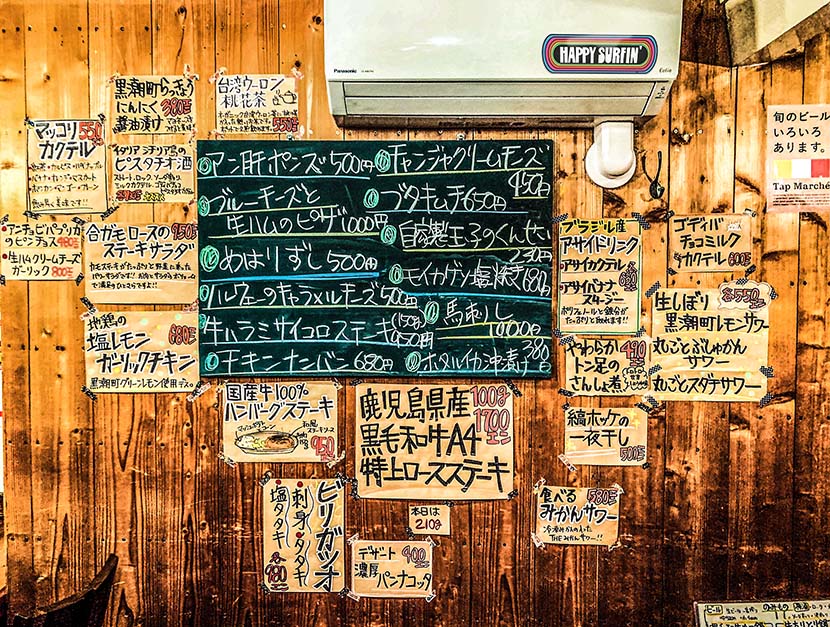 Panasonic
HAPPY SURFIN'
Eolia
マッコリ 550
カクテル
黒潮町らっきょう
にんにく 380
醤油漬け
台湾ウーロン
桃花茶
550
イタリア シチリア島の
ピスタチオ酒
旬のビール
いろいろ
あります。
Tap Marché
アン肝ポンズ 500円
ブルーチーズと
生ハムのピザ 1000円
めはりずし 500円
ノルウェーのキャラメルチーズ 500円
牛ハラミサイコロステーキ (150g)
チキンナンバン 680円
チャンジャクリームチーズ
450円
ブタキムチ 650円
自家製玉子のくんせい
230円
モイカゲソ塩焼き 680円
馬刺し
1000円
ホタルイカ沖漬け 380円
アンチョビパプリカ
のピンチョス 480
生ハムクリームチーズ
ガーリック 800
合ガモロースの 950円
ステーキサラダ
地鶏の 880
塩レモン
ガーリックチキン
黒潮町グリーンレモン使用デス。
ブラジル産
アサイドリンク
アサイカクテル
アサイバナナ
スムージー
ポリフェノールと鉄分が
たっぷりと取れます!!
ゴディバ
チョコミルク
カクテル 600円
生しぼり 各550円
黒潮町レモンサワー
丸ごとぶしゅかん
サワー
丸ごとスダチサワー
やわらか 490
トン足の
さんしょ煮
国産牛100%
ハンバーグステーキ
950
鹿児島県産 100g
黒毛和牛A4 1700円
特上ロースステーキ
本日は
210g
縞ホッケの
一夜干し
500円
食べる 580円
みかんサワー
冷凍みかんの入った
THEみかんサワー!!
ビリガツオ
刺身・タタキ
塩タタキ
各980
デザート 400
濃厚 パンナコッタ